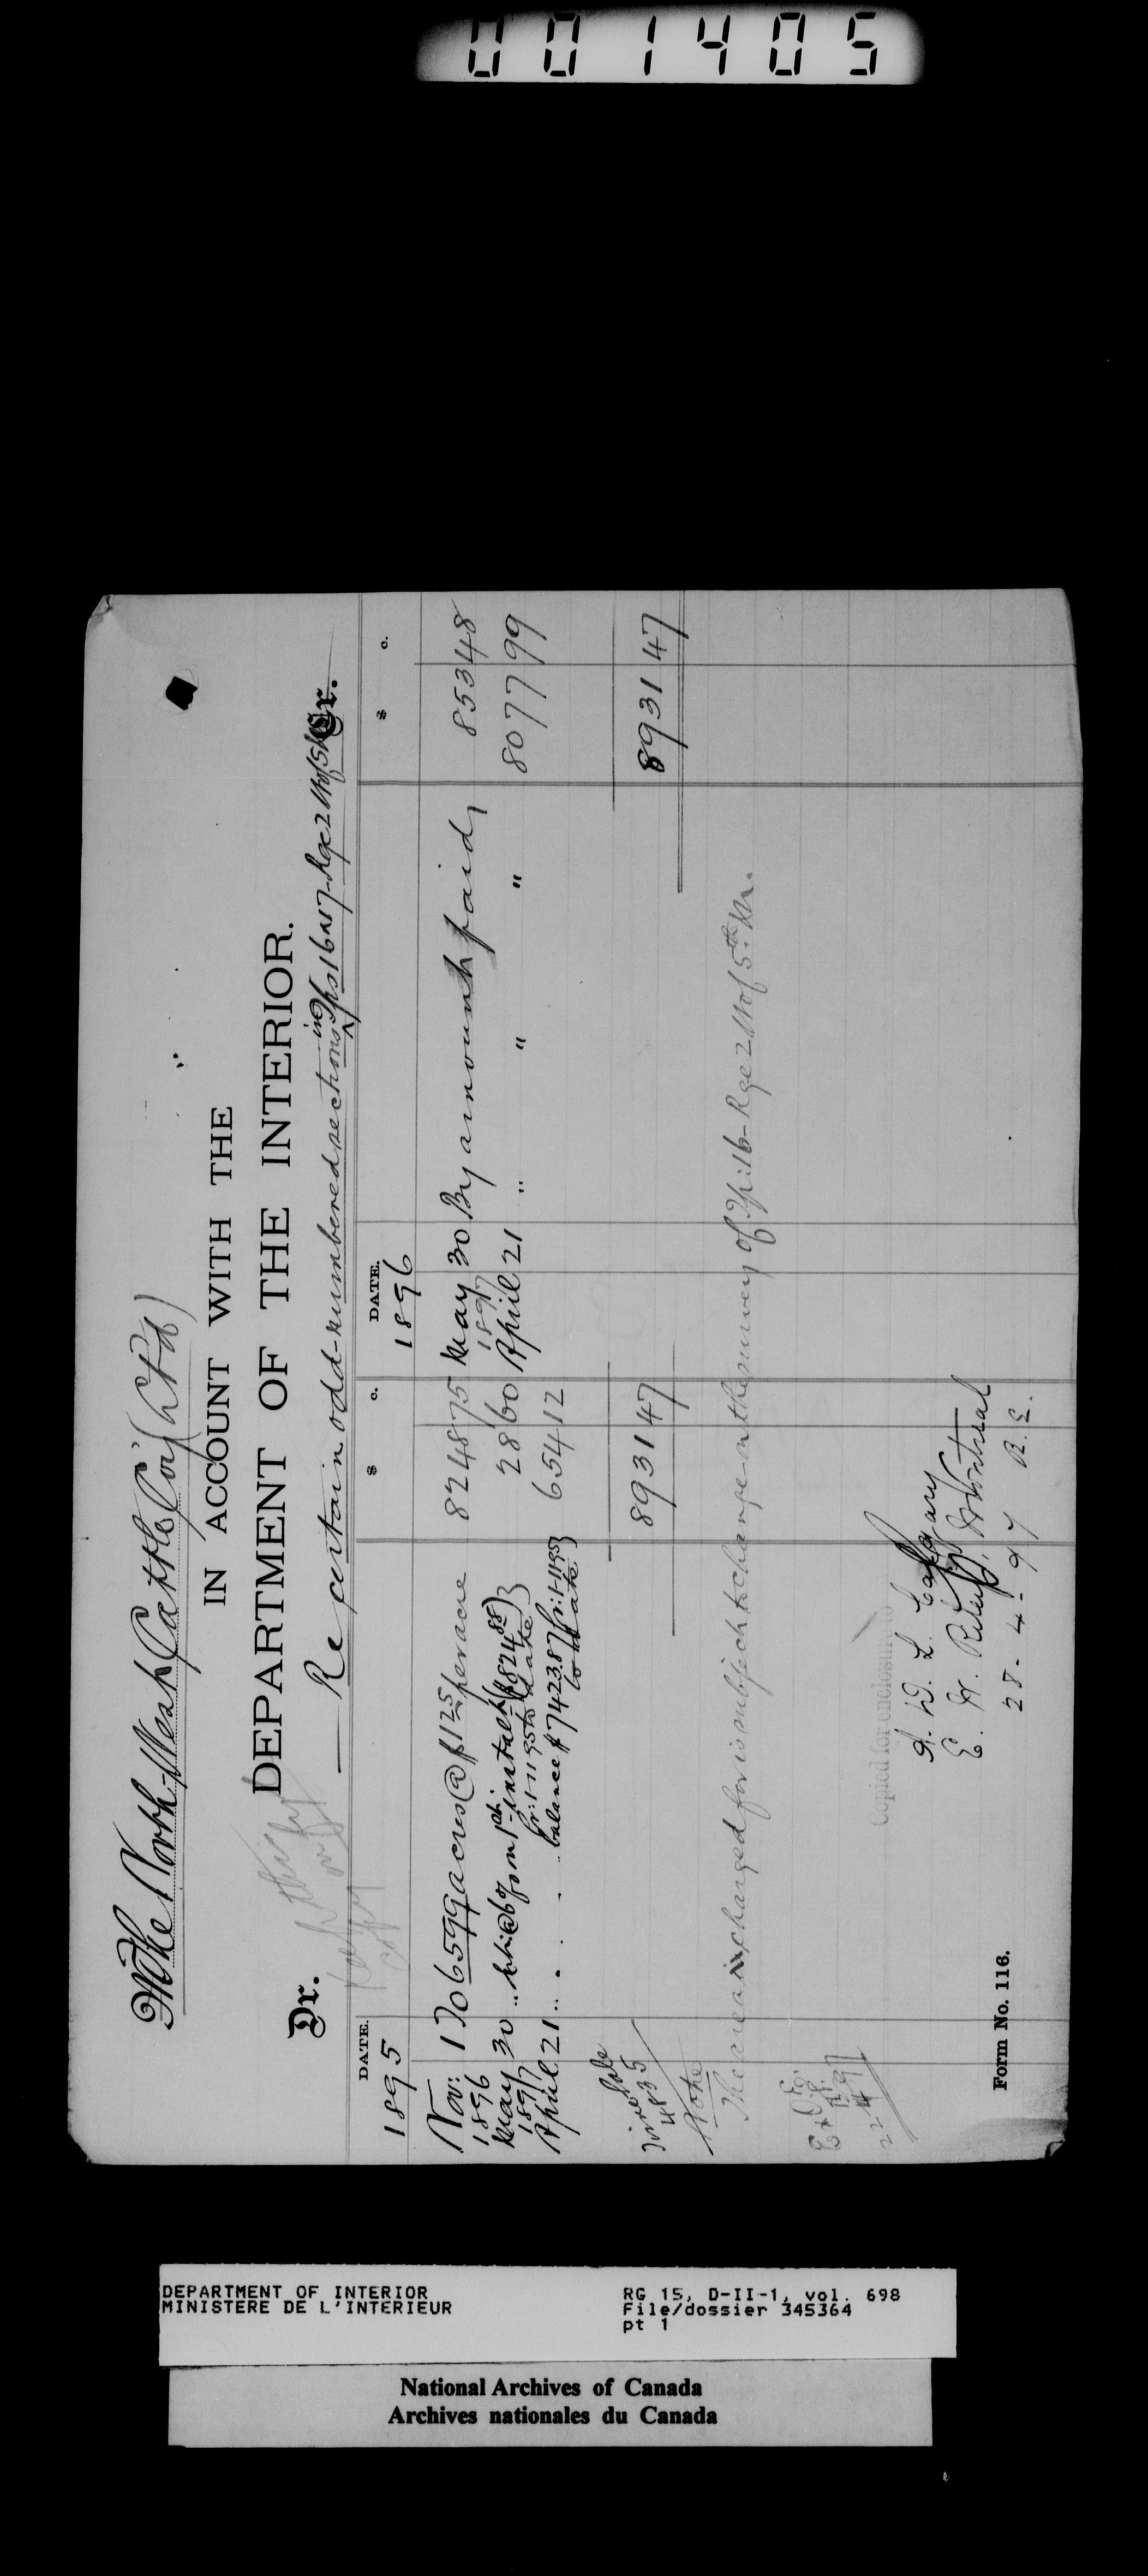 001405
The North-West Cattle Coy (Ltd)
IN ACCOUNT WITH THE
DEPARTMENT OF THE INTERIOR.
Dr. Re certain odd-numbered sections in Tps 16 & 17-Rge 2 W of 5 M Cr.
DATE. $ c. DATE. $ c.
1895 1896
Nov: 1 To 6599 acres @ $1.25 per acre 8248 75 May 30 By amount paid 853 48
1896 1897
May 30 .. Int: @ 6% on 1st instalt ($824.88) 28 60 April 21 .. " " 8077 99
fr: 1-11-95 to date
1897
April 21 .. . . .. balance $7423.87 fr: 1-11-95 654 12
to date
8931 47 8931 47
4835
Note
The area charged for is subject to change on the survey of Tp: 16-Rge 2 W of 5th M.
22-4-97
Copied for enclosure to
A. D. L. Calgary
E. H. Montreal
28-4-97 R.E.
Form No. 116.
DEPARTMENT OF INTERIOR
MINISTERE DE L'INTERIEUR
RG 15, D-II-1, vol. 698
File/dossier 345364
pt 1
National Archives of Canada
Archives nationales du Canada